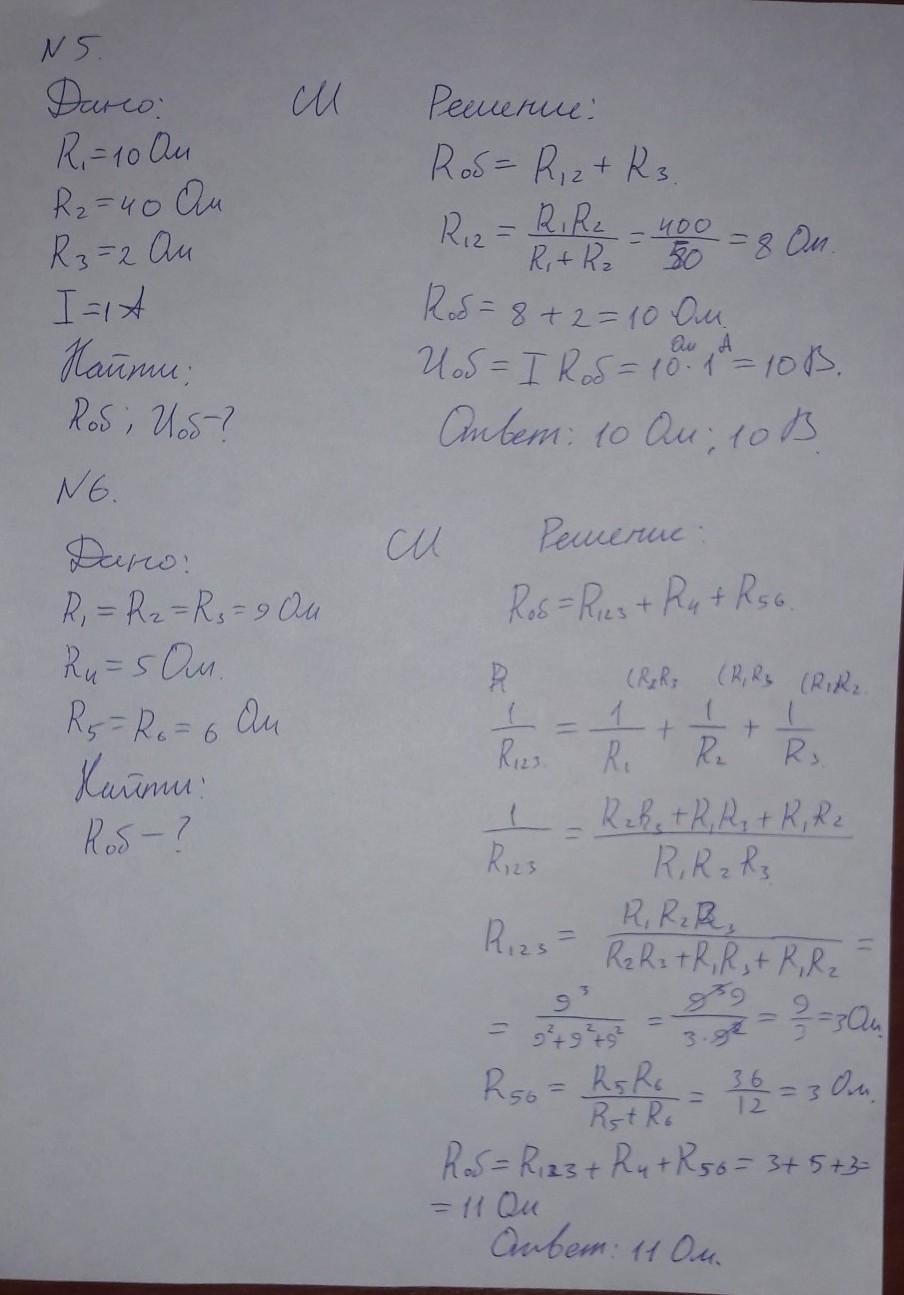 N5.
Дано: СИ Решение:
R₁=10 Ом
R₂=40 Ом
R₃=2 Ом
I=1А
Найти:
Rоб; Uоб-?
Rоб = R₁₂ + R₃.
R₁₂ = R₁R₂ / (R₁+R₂) = 400/50 = 8 Ом.
Rоб = 8 + 2 = 10 Ом.
Uоб = I Rоб = 10 Ом · 1 А = 10 В.
Ответ: 10 Ом; 10 В
N6.
Дано: СИ Решение:
R₁ = R₂ = R₃ = 9 Ом
R₄ = 5 Ом.
R₅ = R₆ = 6 Ом
Найти:
Rоб - ?
Rоб = R₁₂₃ + R₄ + R₅₆.
R (R₂R₃ (R₁R₃ (R₁R₂
1/R₁₂₃ = 1/R₁ + 1/R₂ + 1/R₃
1/R₁₂₃ = (R₂R₃ + R₁R₃ + R₁R₂) / (R₁R₂R₃)
R₁₂₃ = R₁R₂R₃ / (R₂R₃ + R₁R₃ + R₁R₂) =
= 9³ / (9²+9²+9²) = 9³ 9 / (3·9²) = 9/3 = 3 Ом.
R₅₆ = R₅R₆ / (R₅+R₆) = 36/12 = 3 Ом.
Rоб = R₁₂₃ + R₄ + R₅₆ = 3 + 5 + 3 =
= 11 Ом
Ответ: 11 Ом.